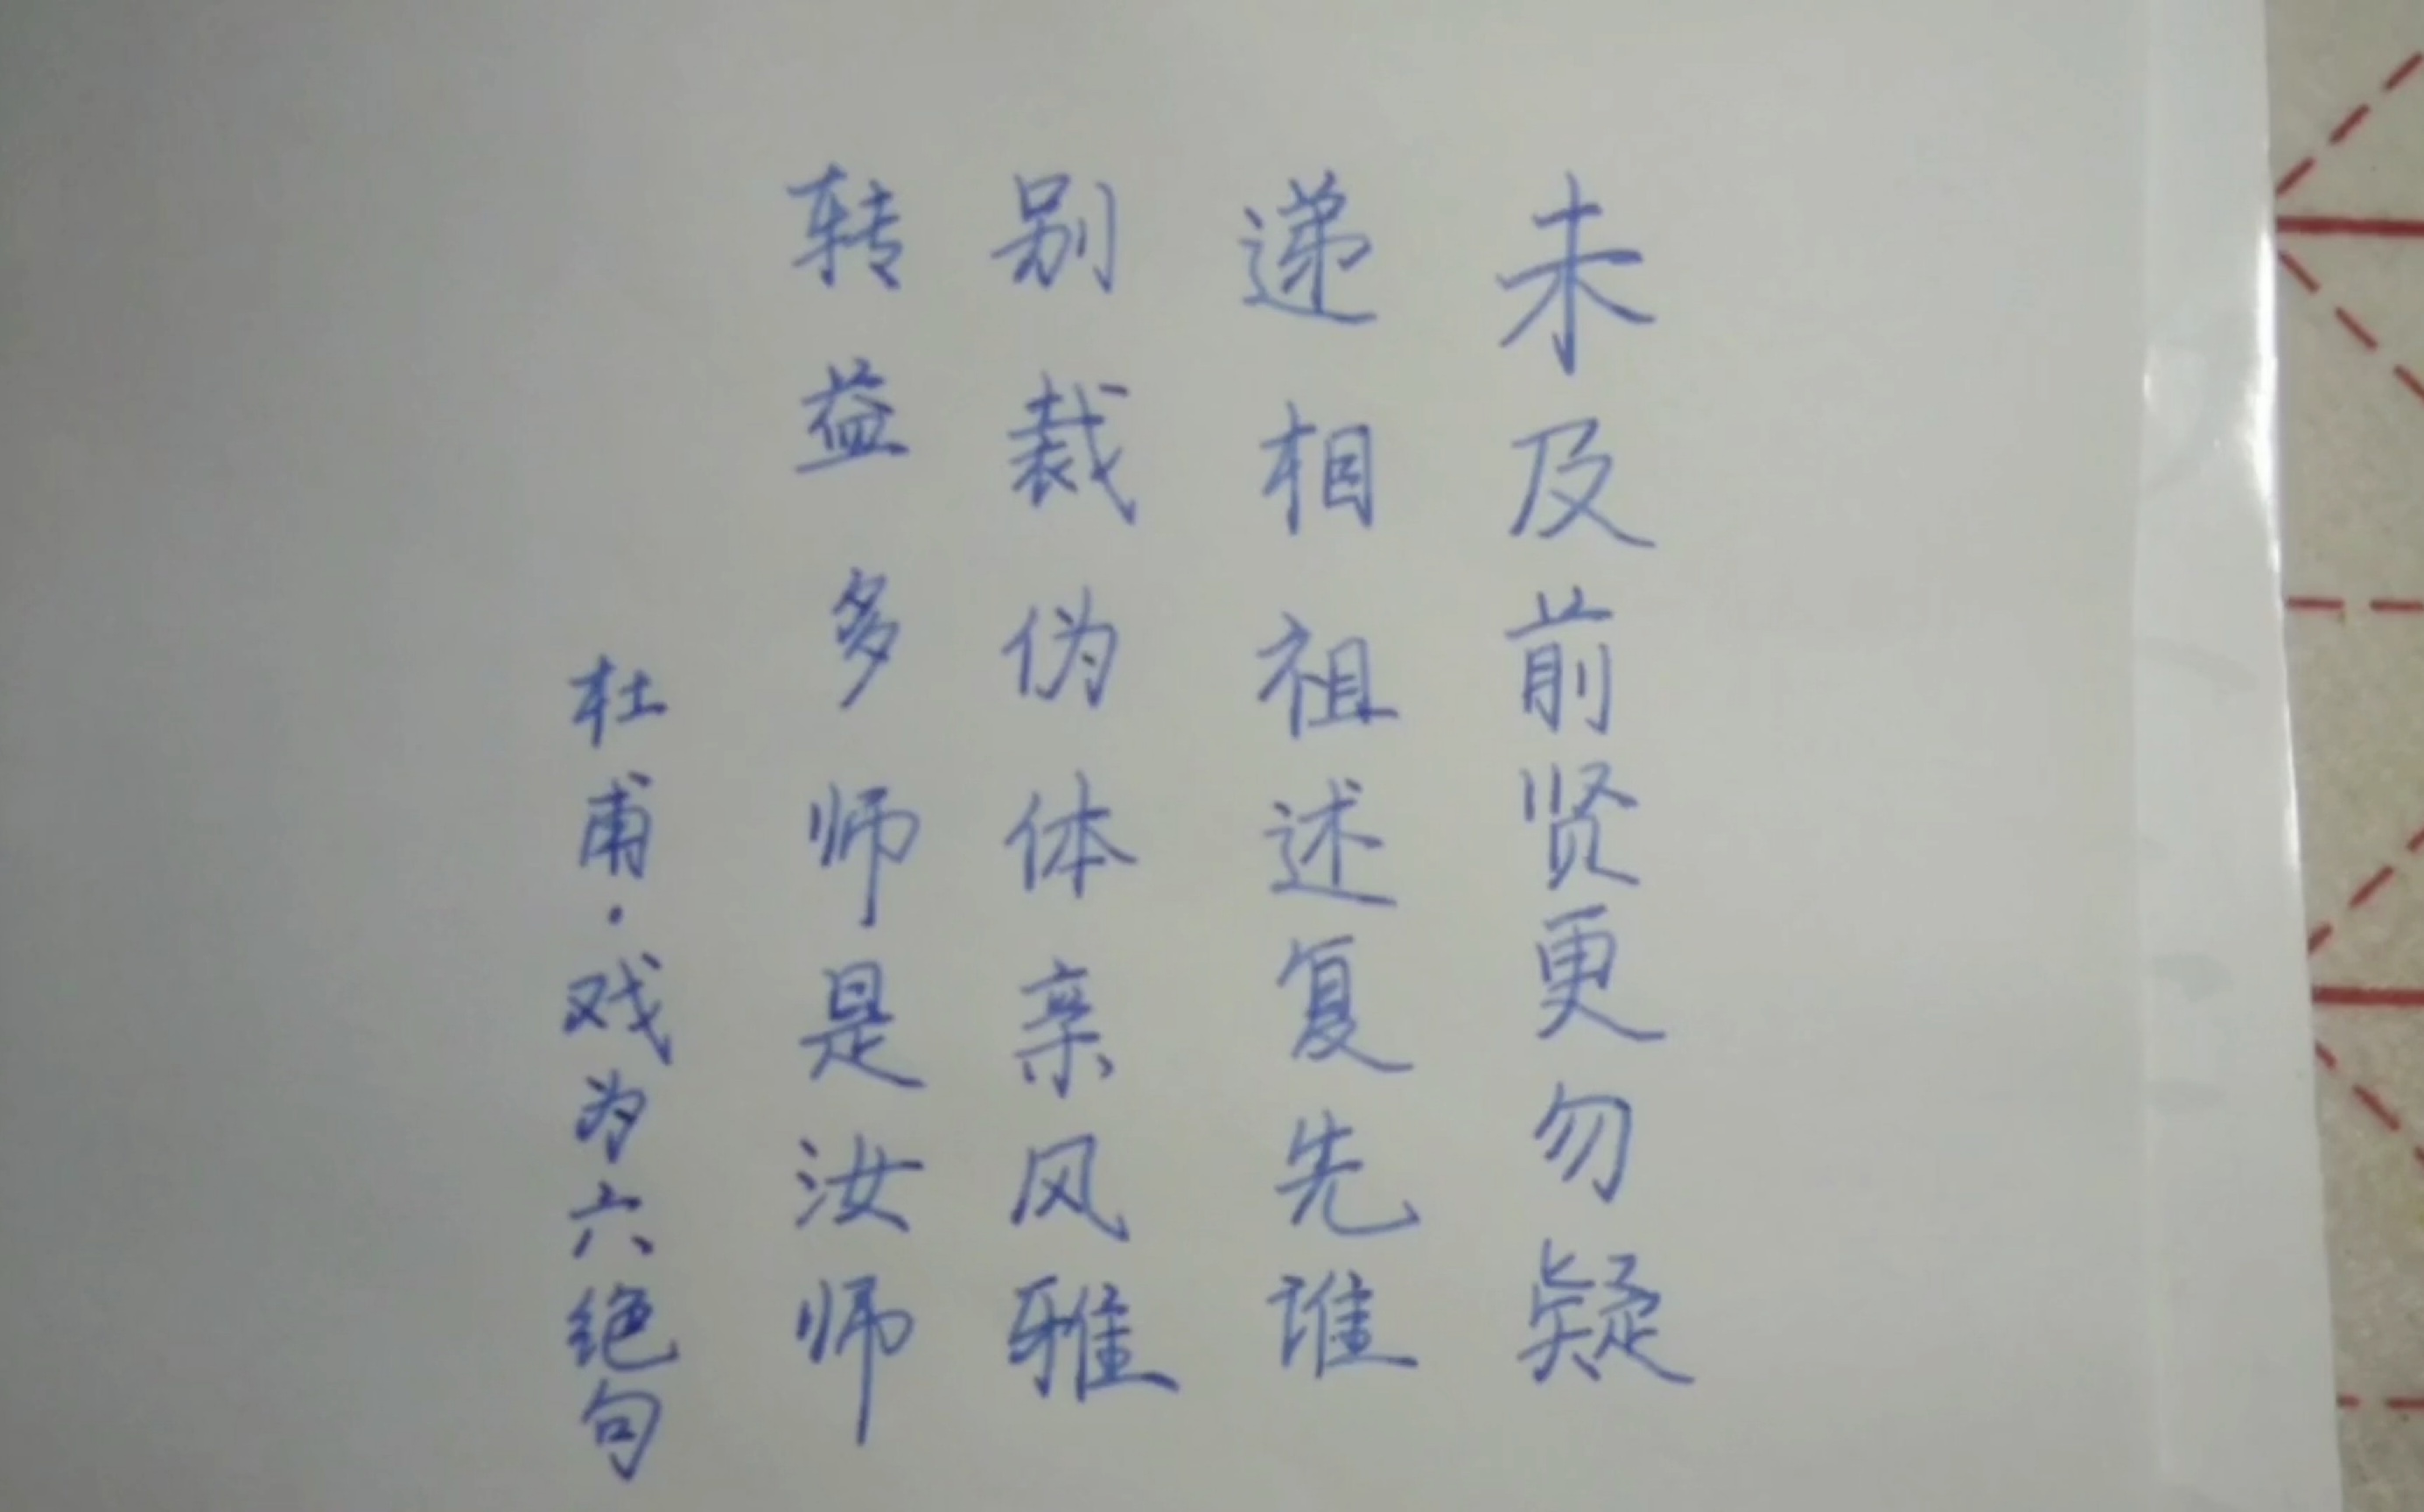 未及前贤更勿疑
递相祖述复先谁
别裁伪体亲风雅
转益多师是汝师
杜甫·戏为六绝句